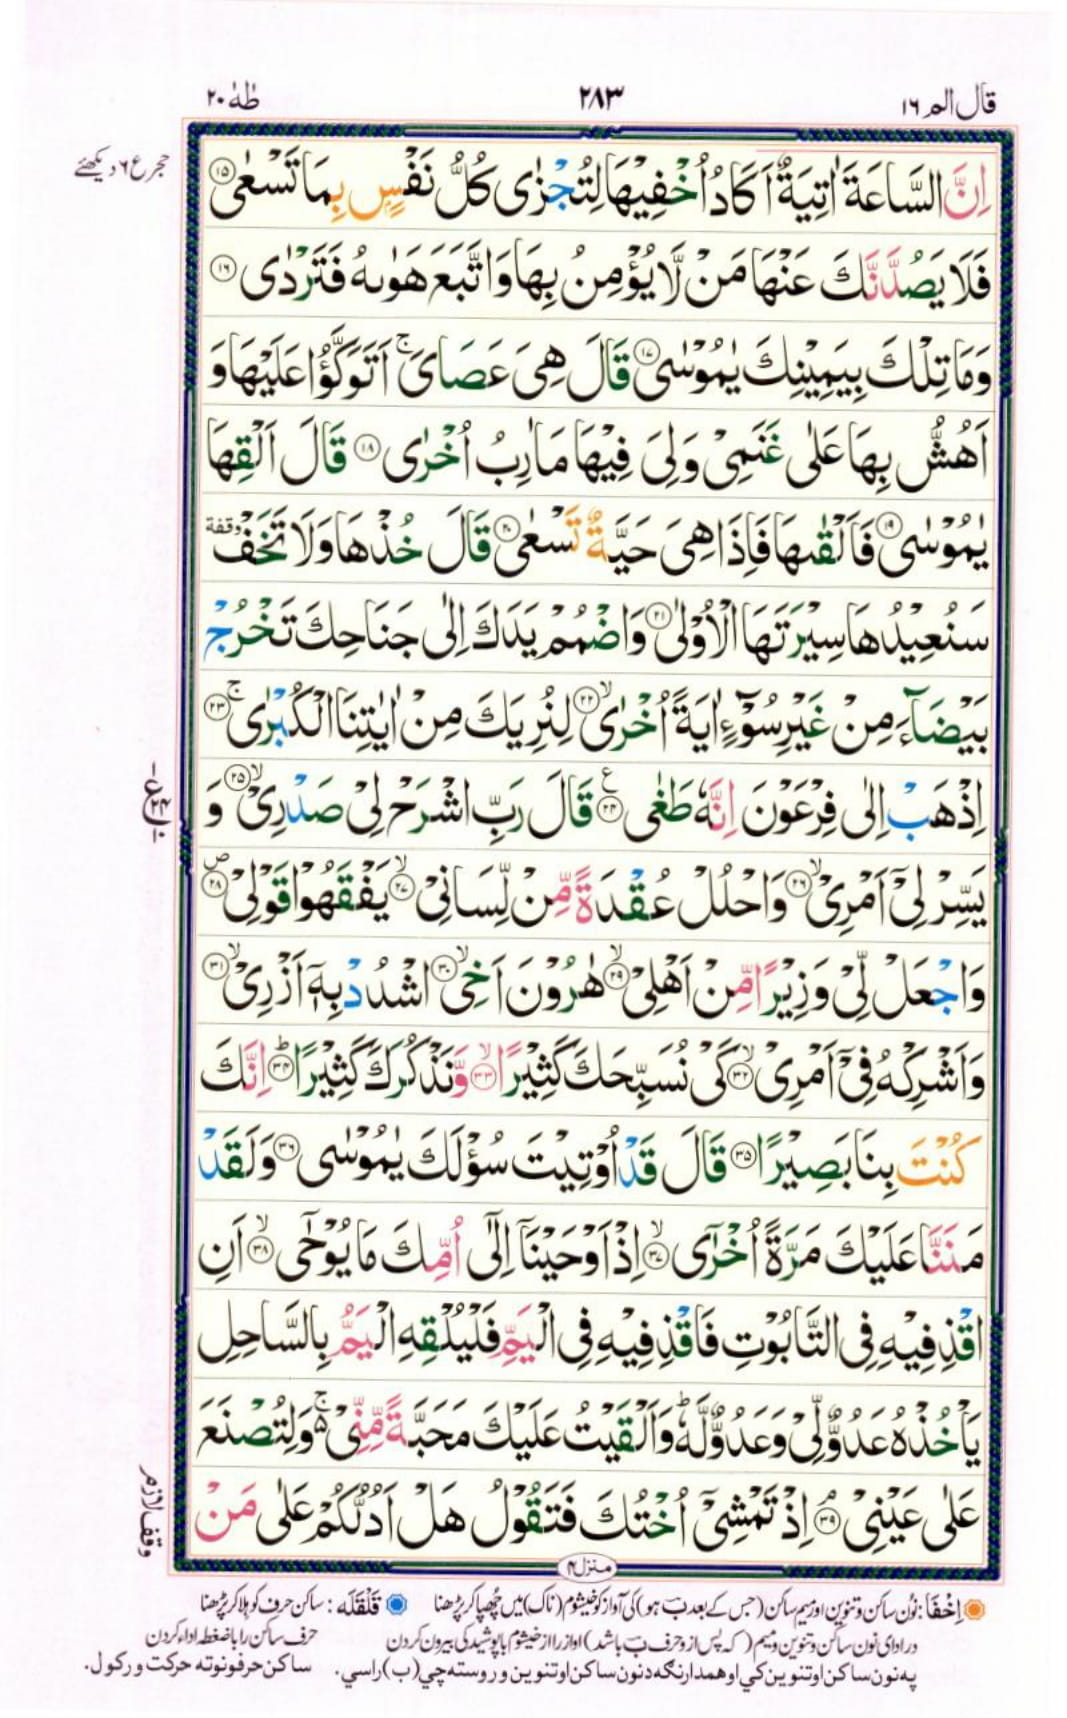 قال الم ١٦
٢٨٣
طٰهٰ ٢٠
اِنَّ السَّاعَةَ اٰتِيَةٌ اَكَادُ اُخْفِيْهَا لِتُجْزٰى كُلُّ نَفْسٍۭ بِمَا تَسْعٰى ١٥
فَلَا يَصُدَّنَّكَ عَنْهَا مَنْ لَّا يُؤْمِنُ بِهَا وَاتَّبَعَ هَوٰىهُ فَتَرْدٰى ١٦
وَمَا تِلْكَ بِيَمِيْنِكَ يٰمُوْسٰى ١٧ قَالَ هِىَ عَصَاىَۚ اَتَوَكَّؤُا عَلَيْهَا وَ
اَهُشُّ بِهَا عَلٰى غَنَمِىْ وَلِىَ فِيْهَا مَاٰرِبُ اُخْرٰى ١٨ قَالَ اَلْقِهَا
يٰمُوْسٰى ١٩ فَاَلْقٰىهَا فَاِذَا هِىَ حَيَّةٌ تَسْعٰى ٢٠ قَالَ خُذْهَا وَلَا تَخَفْ وقفة
سَنُعِيْدُهَا سِيْرَتَهَا الْاُوْلٰى ٢١ وَاضْمُمْ يَدَكَ اِلٰى جَنَاحِكَ تَخْرُجْ
بَيْضَآءَ مِنْ غَيْرِ سُوْٓءٍ اٰيَةً اُخْرٰىۙ ٢٢ لِنُرِيَكَ مِنْ اٰيٰتِنَا الْكُبْرٰىۚ ٢٣
اِذْهَبْ اِلٰى فِرْعَوْنَ اِنَّهٗ طَغٰى ع ٢٤ قَالَ رَبِّ اشْرَحْ لِىْ صَدْرِىْۙ ٢٥ وَ
يَسِّرْ لِىْٓ اَمْرِىْۙ ٢٦ وَاحْلُلْ عُقْدَةً مِّنْ لِّسَانِىْۙ ٢٧ يَفْقَهُوْا قَوْلِىْ ص ٢٨
وَاجْعَلْ لِّىْ وَزِيْرًا مِّنْ اَهْلِىْۙ ٢٩ هٰرُوْنَ اَخِىْۙ ٣٠ اشْدُدْ بِهٖٓ اَزْرِىْۙ ٣١
وَاَشْرِكْهُ فِىْٓ اَمْرِىْۙ ٣٢ كَىْ نُسَبِّحَكَ كَثِيْرًاۙ ٣٣ وَّنَذْكُرَكَ كَثِيْرًاؕ ٣٤ اِنَّكَ
كُنْتَ بِنَا بَصِيْرًا ٣٥ قَالَ قَدْ اُوْتِيْتَ سُؤْلَكَ يٰمُوْسٰى ٣٦ وَلَقَدْ
مَنَنَّا عَلَيْكَ مَرَّةً اُخْرٰٓىۙ ٣٧ اِذْ اَوْحَيْنَآ اِلٰٓى اُمِّكَ مَا يُوْحٰٓىۙ ٣٨ اَنِ
اقْذِفِيْهِ فِى التَّابُوْتِ فَاقْذِفِيْهِ فِى الْيَمِّ فَلْيُلْقِهِ الْيَمُّ بِالسَّاحِلِ
يَاْخُذْهُ عَدُوٌّ لِّىْ وَعَدُوٌّ لَّهٗؕ وَاَلْقَيْتُ عَلَيْكَ مَحَبَّةً مِّنِّىْۚ وَلِتُصْنَعَ
عَلٰى عَيْنِىْۘ ٣٩ اِذْ تَمْشِىْٓ اُخْتُكَ فَتَقُوْلُ هَلْ اَدُلُّكُمْ عَلٰى مَنْ
وقف لازم
منزل ٤
اِخْفَا: نُون ساکن و تنوین اور میم ساکن (جس کے بعد بَ ہو) کی آواز کو خیشوم (ناک) میں چُھپا کر پڑھنا
قَلْقَلَه: ساکن حرف کو ہلا کر پڑھنا
در ادای نون ساکن و تنوین و میم (که پس از و حرف بَ باشد) آواز را از خیشوم با پوشیدگی بیرون کردن
حرف ساکن را با ضغطه اداء کردن
په نون ساکن او تنوین کي او همدارنګه د نون ساکن او تنوین و روسته چي (ب) راسي.
ساکن حرفونو ته حرکت ورکول.